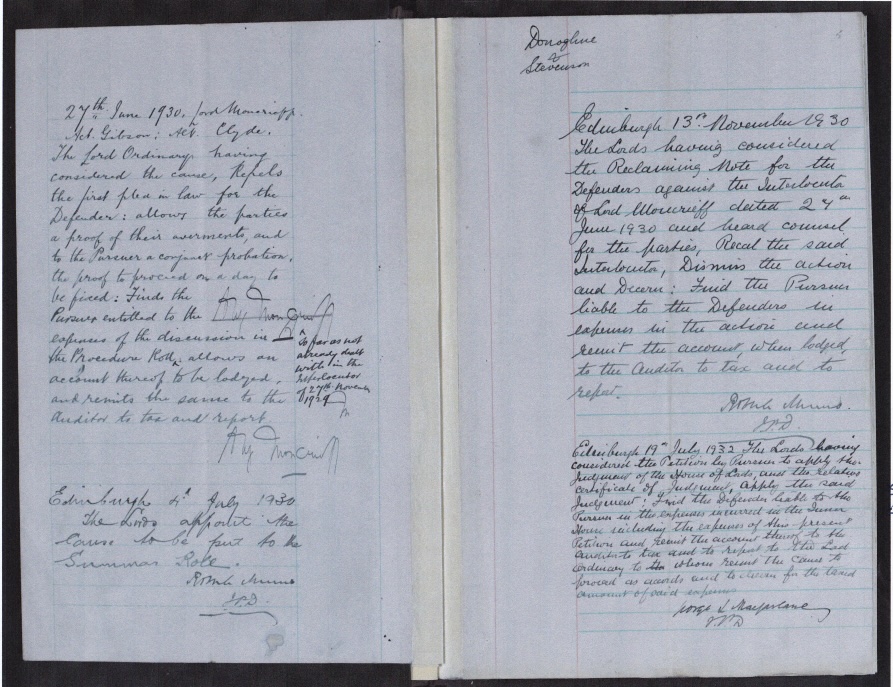 27th June 1930. Lord Moncrieff.
Act. Gibson; Alt. Clyde.
The Lord Ordinary having
considered the cause, Repels
the first plea in law for the
Defender: allows the parties
a proof of their averments, and
to the Pursuer a conjunct probation,
the proof to proceed on a day to
be fixed: Finds the
Pursuer entitled to the
expenses of the discussion in
the Procedure Roll, allows an
account thereof to be lodged,
and remits the same to the
Auditor to tax and report
so far as not
already dealt
with in the
interlocutor
of 27th November
1929
Moncrieff
Edinburgh 4th July 1930
The Lords appoint the
Cause to be put to the
Summar Roll.
Robert Munro
I.P.D.
Donoghue
v
Stevenson
Edinburgh 13th November 1930
The Lords having considered
the Reclaiming Note for the
Defenders against the Interlocutor
of Lord Moncrieff dated 27th
June 1930 and heard counsel
for the parties, Recal the said
Interlocutor, Dismiss the action
and Decern: Find the Pursuer
liable to the Defenders in
expenses in the action and
remit the account, when lodged,
to the Auditor to tax and to
report.
Robert Munro.
I.P.D.
Edinburgh 19th July 1932 The Lords having
considered the Petition by Pursuer to apply the
Judgment of the House of Lords, and the relative
certificate of Judgment, Apply the said
Judgment: Find the Defender liable to the
Pursuer in the expenses incurred in the Inner
House including the expenses of this present
Petition and remit the account thereof to the
Auditor to tax and to report to the Lord
Ordinary to whom remit the cause to
proceed as accords and to decern for the taxed
amount of said expenses
George L Macfarlane
I.P.D